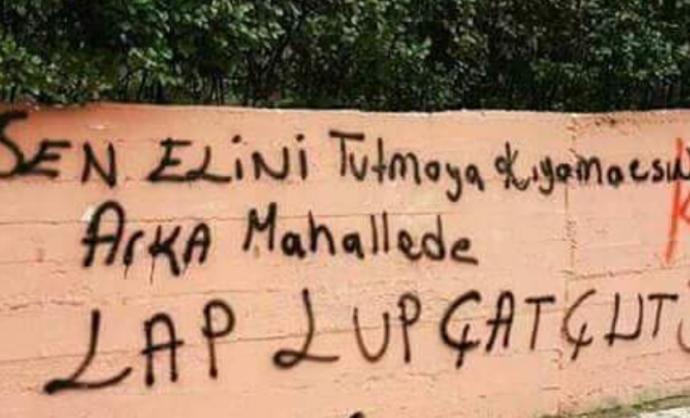 SEN ELİNİ Tutmaya Kıyamaesın
Arka Mahallede
LAP LUP ÇAT ÇUT